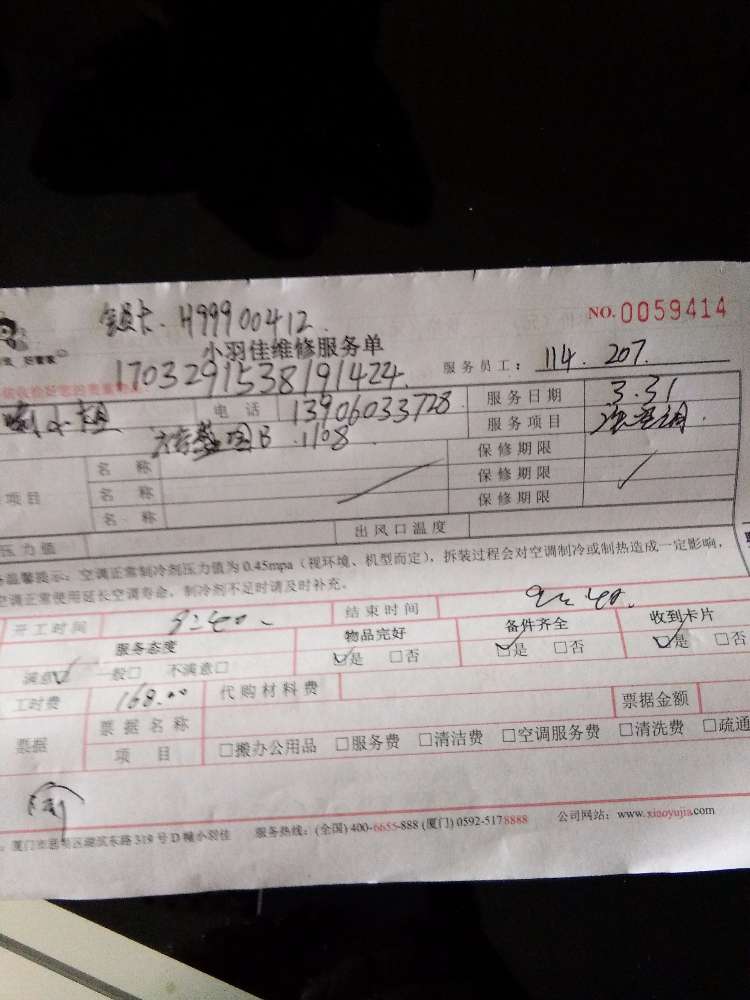 H99900412 NO.0059414
小羽佳维修服务单 服务员工: 114. 207.
1703291538191424
小姐 电话 13906033728 服务日期 3.31
B.1108 服务项目 空调
名称 保修期限
项目 名称 保修期限
名称 保修期限
压力值 出风口温度
温馨提示: 空调正常制冷剂压力值为0.45mpa(视环境、机型而定), 拆装过程会对空调制冷或制热造成一定影响,
空调正常使用延长空调寿命, 制冷剂不足时请及时补充。
开工时间 9:40 结束时间
服务态度 物品完好 备件齐全 收到卡片
满意☑ 一般□ 不满意□ ☑是 □否 ☑是 □否 ☑是 □否
工时费 168.00 代购材料费 票据金额
票据 票据名称
项目 □搬办公用品 □服务费 □清洁费 □空调服务费 □清洗费 □疏通
厦门市思明区湖滨东路319号D幢小羽佳 服务热线: (全国) 400-6655-888 (厦门) 0592-5178888 公司网站: www.xiaoyujia.com